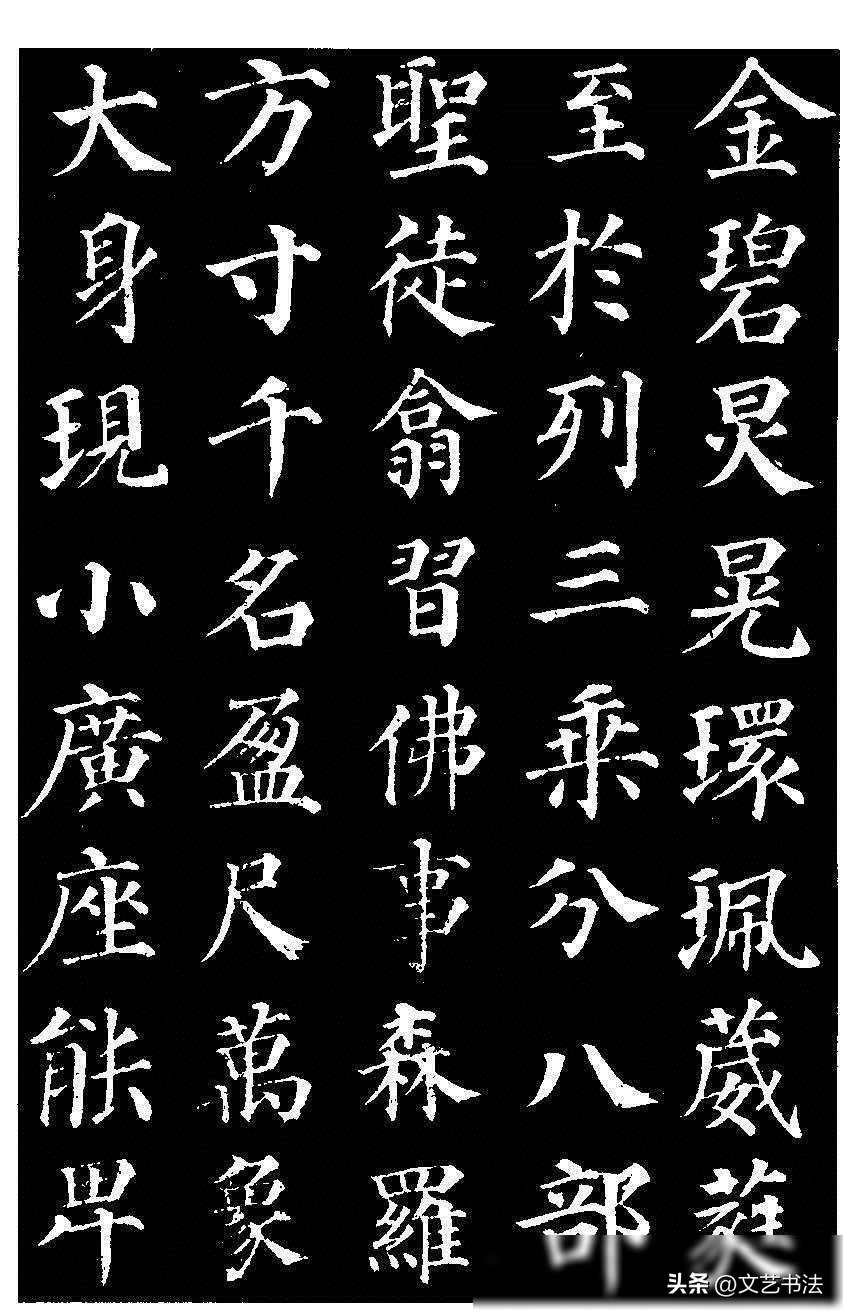 金碧炅晃環珮葳蕤
至於列三乘分八部
聖徒翕習佛事森羅
方寸千名盈尺萬象
大身現小廣座能卑
头条 @文艺书法